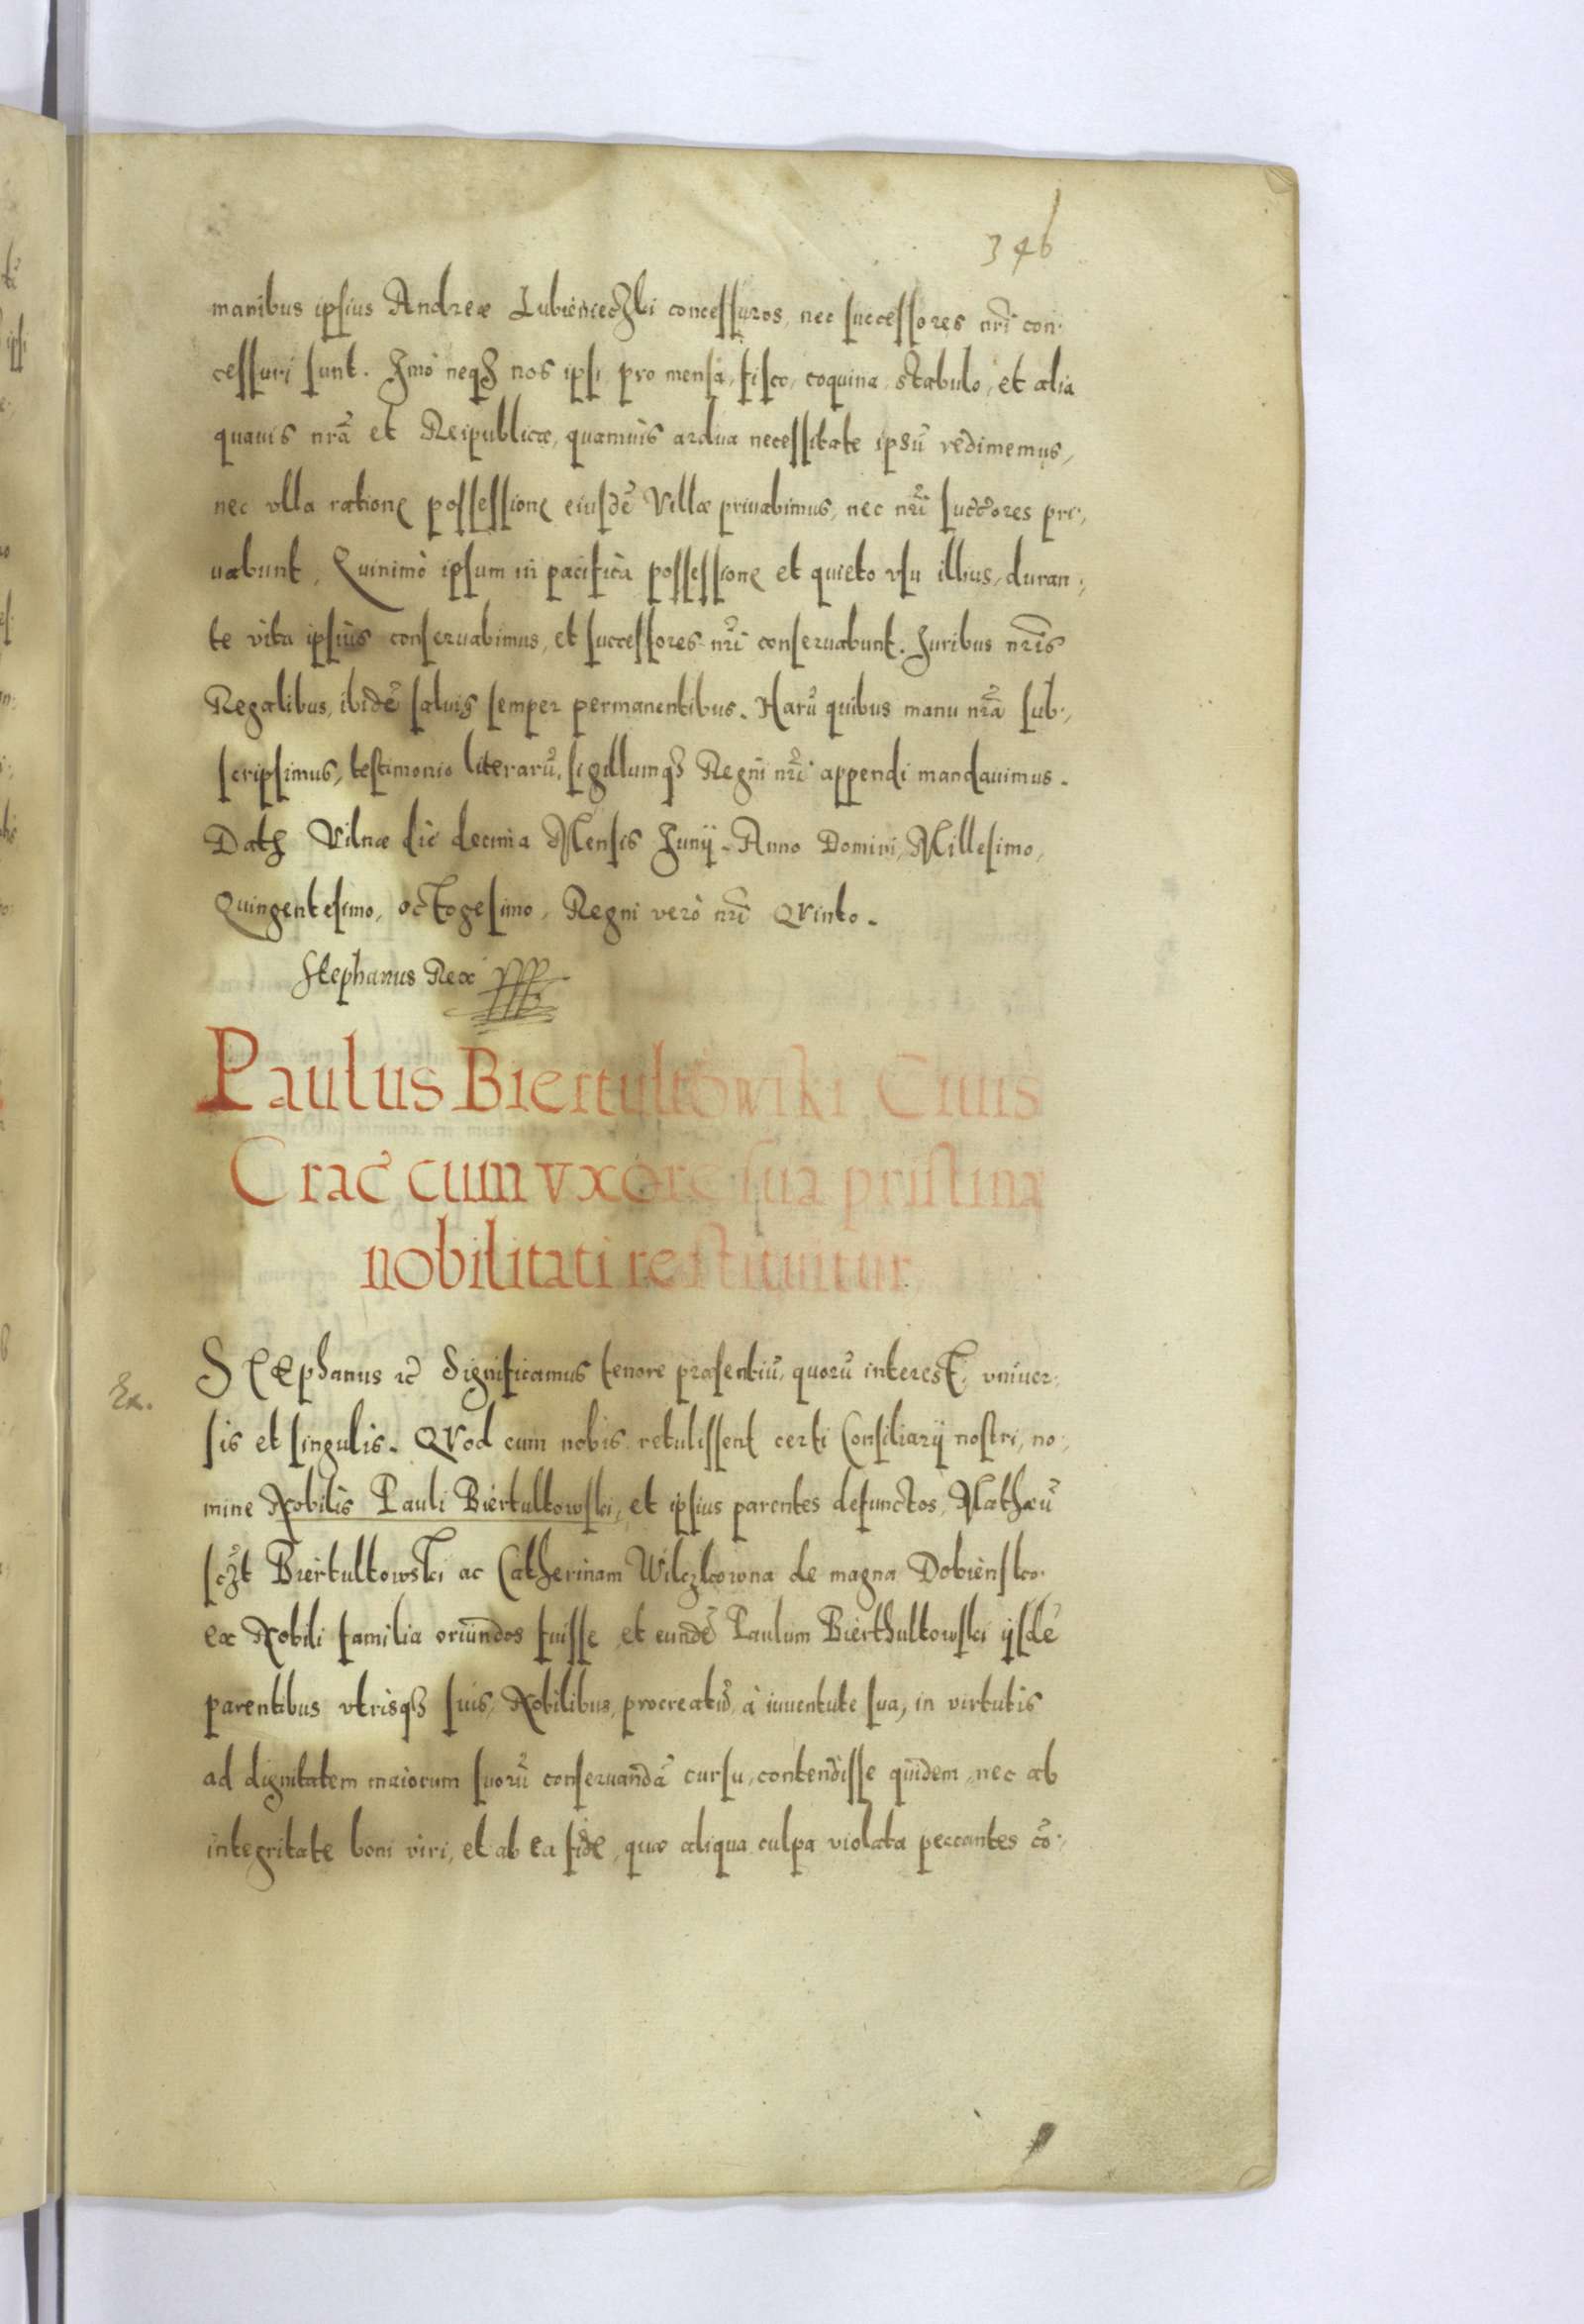 346
manibus ipsius Andreæ Lubienieczki concessuros, nec successores nr̃i con:
cessuri sunt. Imò neqꝫ nos ipsi, pro mensa, fisco, coquina, stabulo, et alia
quauis nr̃a et Reipublicæ, quamuis ardua necessitate ipsũ redimemus,
nec vlla ratione possessione eiusdẽ Villæ priuabimus, nec nr̃i succ̃ores pri:,
uabunt, Quinimò ipsum in pacifica possessione et quieto vsu illius, duran:,
te vita ipsius conseruabimus, et successores nr̃i conseruabunt. Iuribus nr̃is
Regalibus, ibidẽ saluis semper permanentibus. Harũ quibus manu nr̃a sub:,
scripsimus, testimonio literarũ, sigillumqꝫ Regni nr̃i appendi mandauimus.
Datꝫ Vilnæ die decima Mensis Iunij. Anno Domini, Millesimo,
Quingentesimo, octogesimo, Regni verò nr̃i QVinto.
Stephanus Rex
Paulus Biertultowski Ciuis
Crac̃ cum vxore sua pristinæ
nobilitati restituitur.
Ex.
Stephanus ꝛc̃ Significamus tenore præsentiũ, quorũ interest, vniuer:
sis et singulis. QVod cum nobis retulissent certi Consiliarij nostri, no:,
mine Nobilis Pauli Biertultowski, et ipsius parentes defunctos, Mathæũ
sczt̃ Biertultowski ac Catherinam Wilczkowna de magna Dobiensko.
ex Nobili familia oriundos fuisse, et eundẽ Paulum Bierthultowski ijsdẽ
parentibus vtrisqꝫ suis, Nobilibus, procreatũ, à iuuentute sua, in virtutis
ad dignitatem maiorum suorũ conseruandã cursu, contendisse quidem, nec ab
integritate boni viri, et ab ea fide, quæ aliqua culpa violata peccantes cõ:,